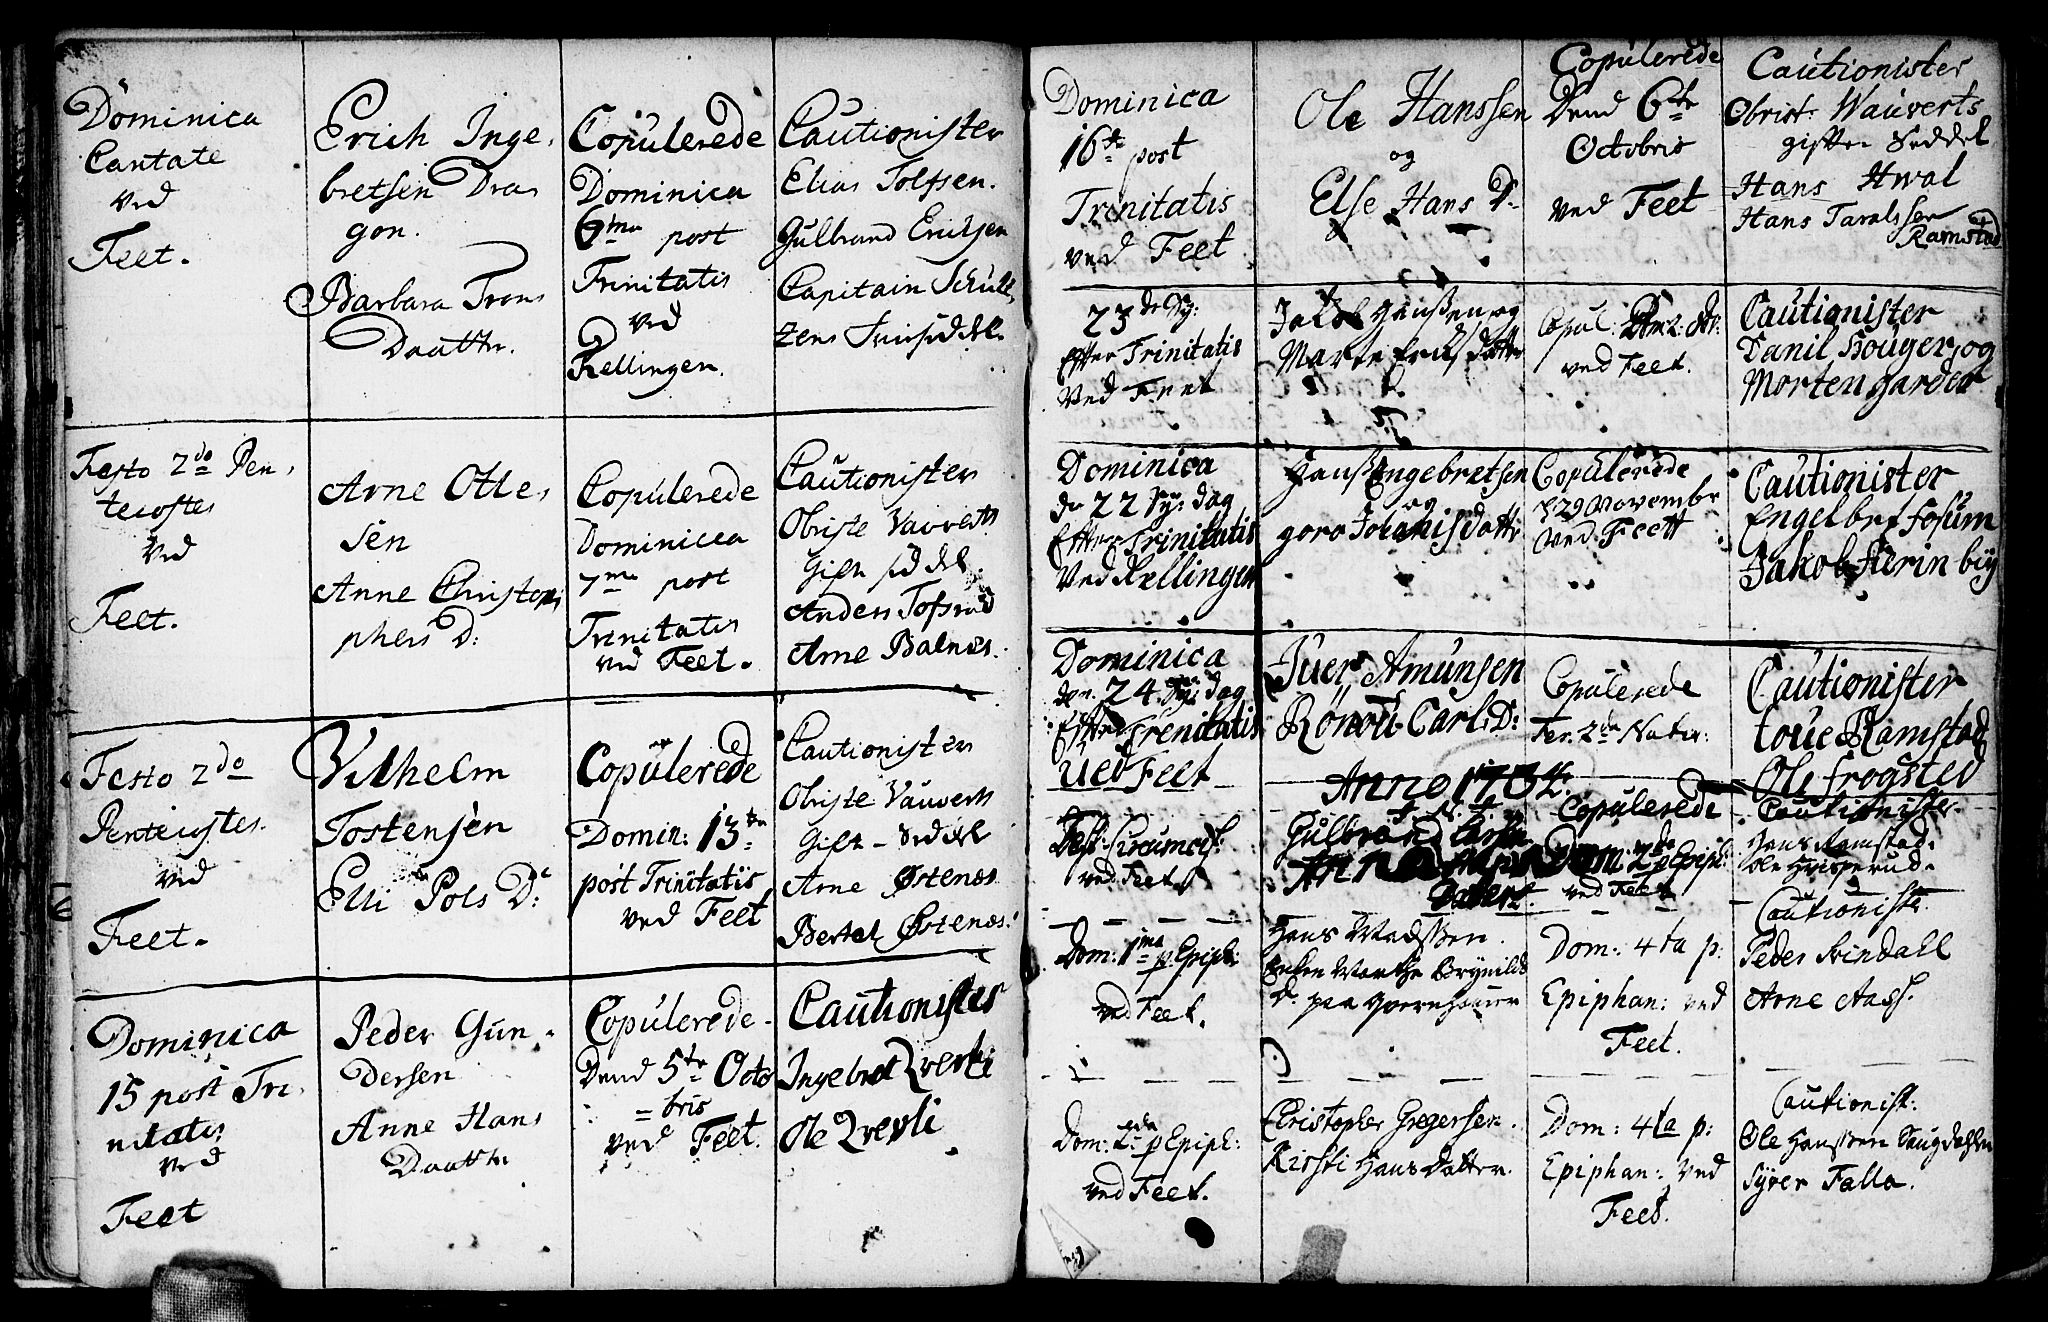 Dominica
Cantate
ved
Feet.
Erich Inge,
bretsen Dra,
gon.
Barbara Trons
Daatter.
Copulerede
Dominica
6ma post
Trinitatis
ved
Kellingen.
Cautionister
Elias Tolfsen.
Gulbrand Erichsen
Capitain Schult,
zens
Festo 2do Pen,
tecostes
ved
Feet.
Arne Olle,
sen
Anne Christop
phers D:
Copulerede
Dominicca
7ma post
Trinitatis
ved Feet.
Cautionister
Obriste Vauverts
Gifte seddel.
Anders Tofsrud
Arne Balnes.
Festo 2do
Pentecostes.
ved
Feet.
Vilhelm
Tostensen
Elli Pols D:
Copulerede
Domin: 13tia
post Trinitatis
ved Feet
Cautionister
Obriste Vauverts
Gifte-Seddel
Arne Østenes
Bertel Østenes.
Dominica
15 post Tri,
nitatis
ved
Feet
Peder Gun,
dersen
Anne Hans
Daatter
Copulerede
Dend 5te Octo
=bris
ved Feet.
Cautionister
Ingebret Qverli
Ole Qverli
Dominica
16de post
Trinitatis
ved Feet
Ole Hanssen
og
Else Hans D.
Copulerede
Dend 6te
Octobris
ved Feet
Cautionister
Obrist. Wauverts
gifte Seddel
Hans Hval
Hans Taralssen
Ramstad
23de Sy:
Efter Trinitatis
Ved Feet
Jakob Hanssen og
Marte Eriks datter
Copul:
ved Feet.
Cautionister
Danil Houger og
Morten garder
Dominica
de 22 Sy: dag
Efter Trinitatis
Ved Kellingen
Hans Engebretsen
og
goro Johanisdatter
Copulerede
29 November
Ved Feett
Cautionister
Engelbret fosum
Jakob
Dominica
den 24 Sy: dag
Efter Trenitatis
Ved Feet
Iuer Amunsen
Rønou Carls D:
Copulerede
Fer. 2da Nativ:
Cautionister
toue Ramstad
Ole frogsted
Anno 1734.
Fest: Circumcis:
ved Feet
Gulbrand
Anna
Datter
Copulerede
Dom. 2da p Epiph:
ved Feet
Cautionister
Hans Ramstad.
Ole
Dom: 1ma p. Epiph:
ved Feet.
Hans Madssen.
Enken Marthe Brynilds
D. paa
Dom: 4ta p:
Epiphan: ved
Feet.
Cautionister
Peder Svindall
Arne Aass.
Dom: 2da p Epiph:
ved Feet.
Christopher Gregersen.
Kirsti Hans datter.
Dom: 4ta p:
Epiphan: ved
Feet.
Cautionist:
Ole Hanssen Haugdahlen
Syver Falla.